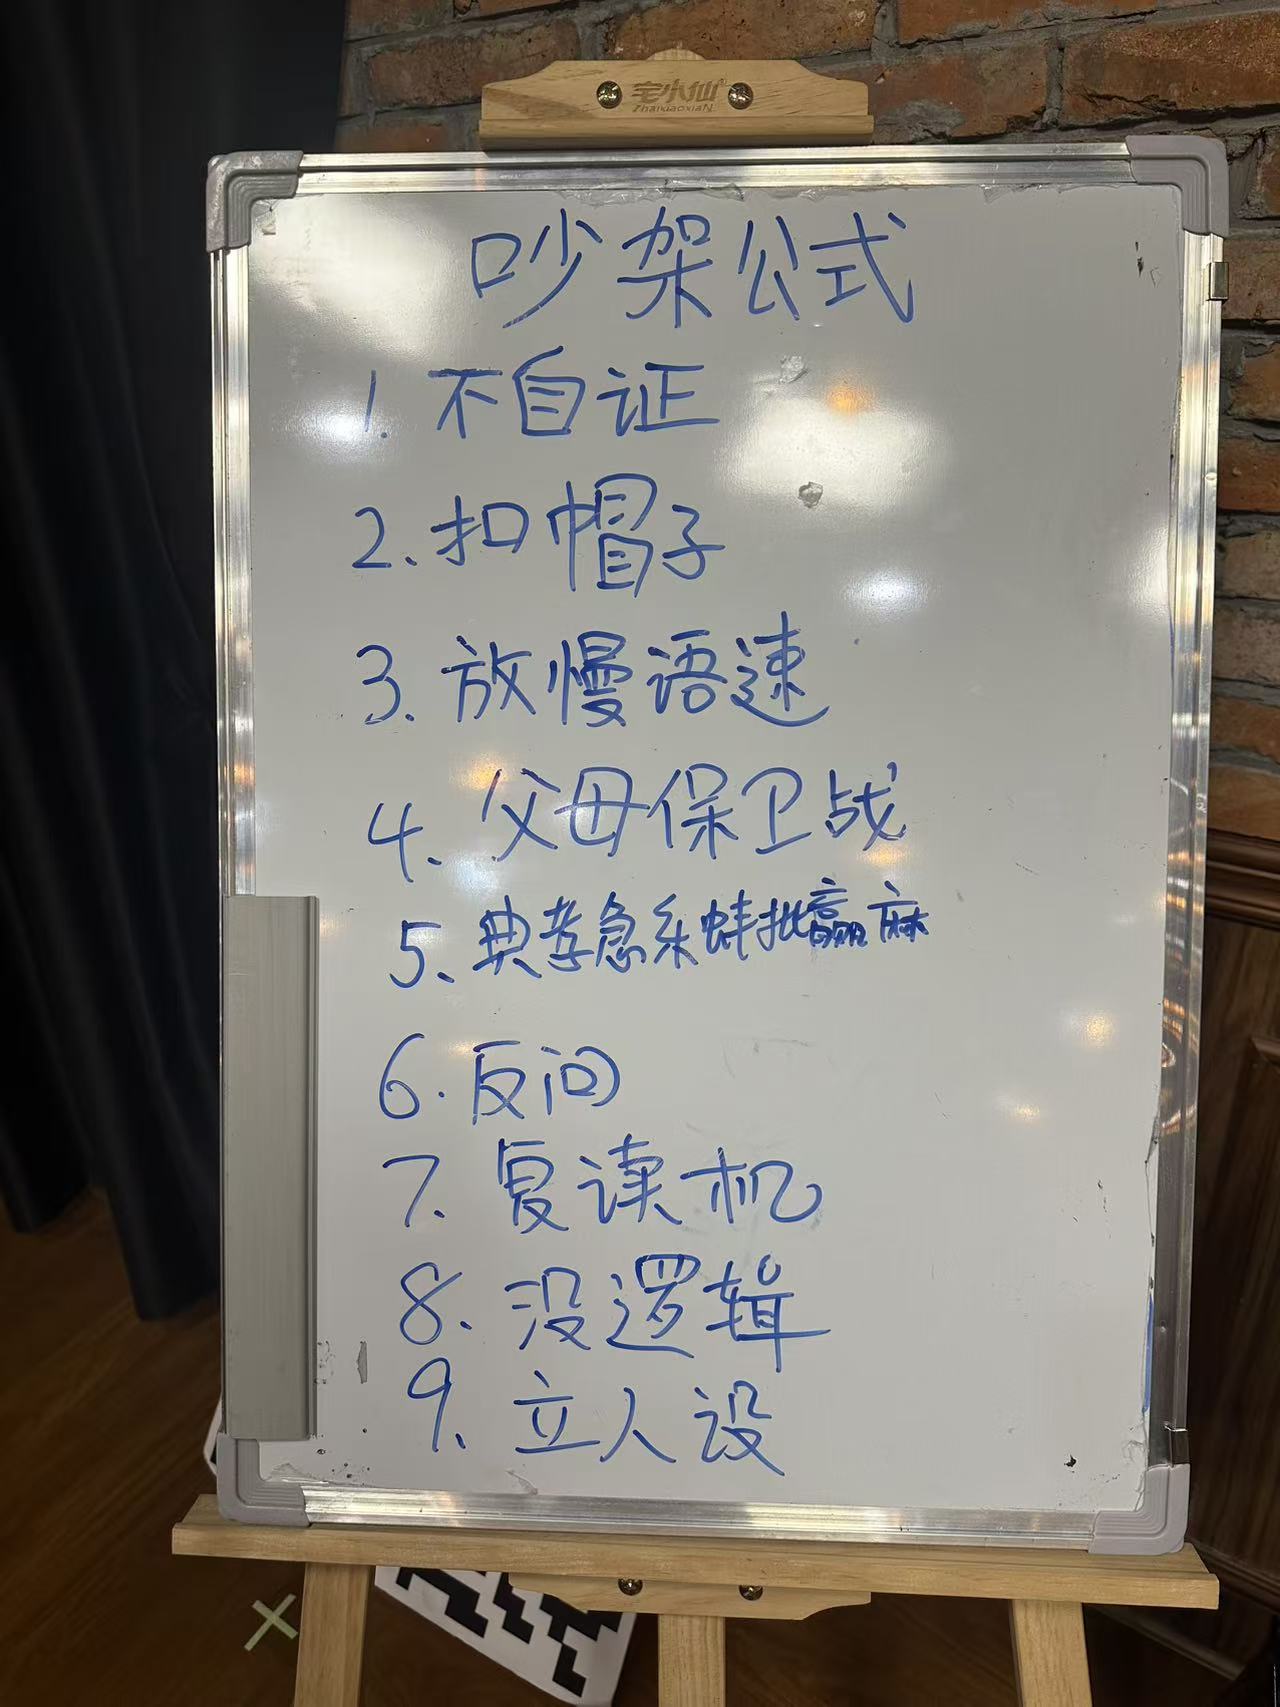 宅小仙
ZhaixiaoxiaN
吵架公式
1. 不自证
2. 扣帽子
3. 放慢语速
4、父母保卫战
5、典孝急乐蚌批赢麻
6. 反问
7、复读机
8、没逻辑
9、立人设